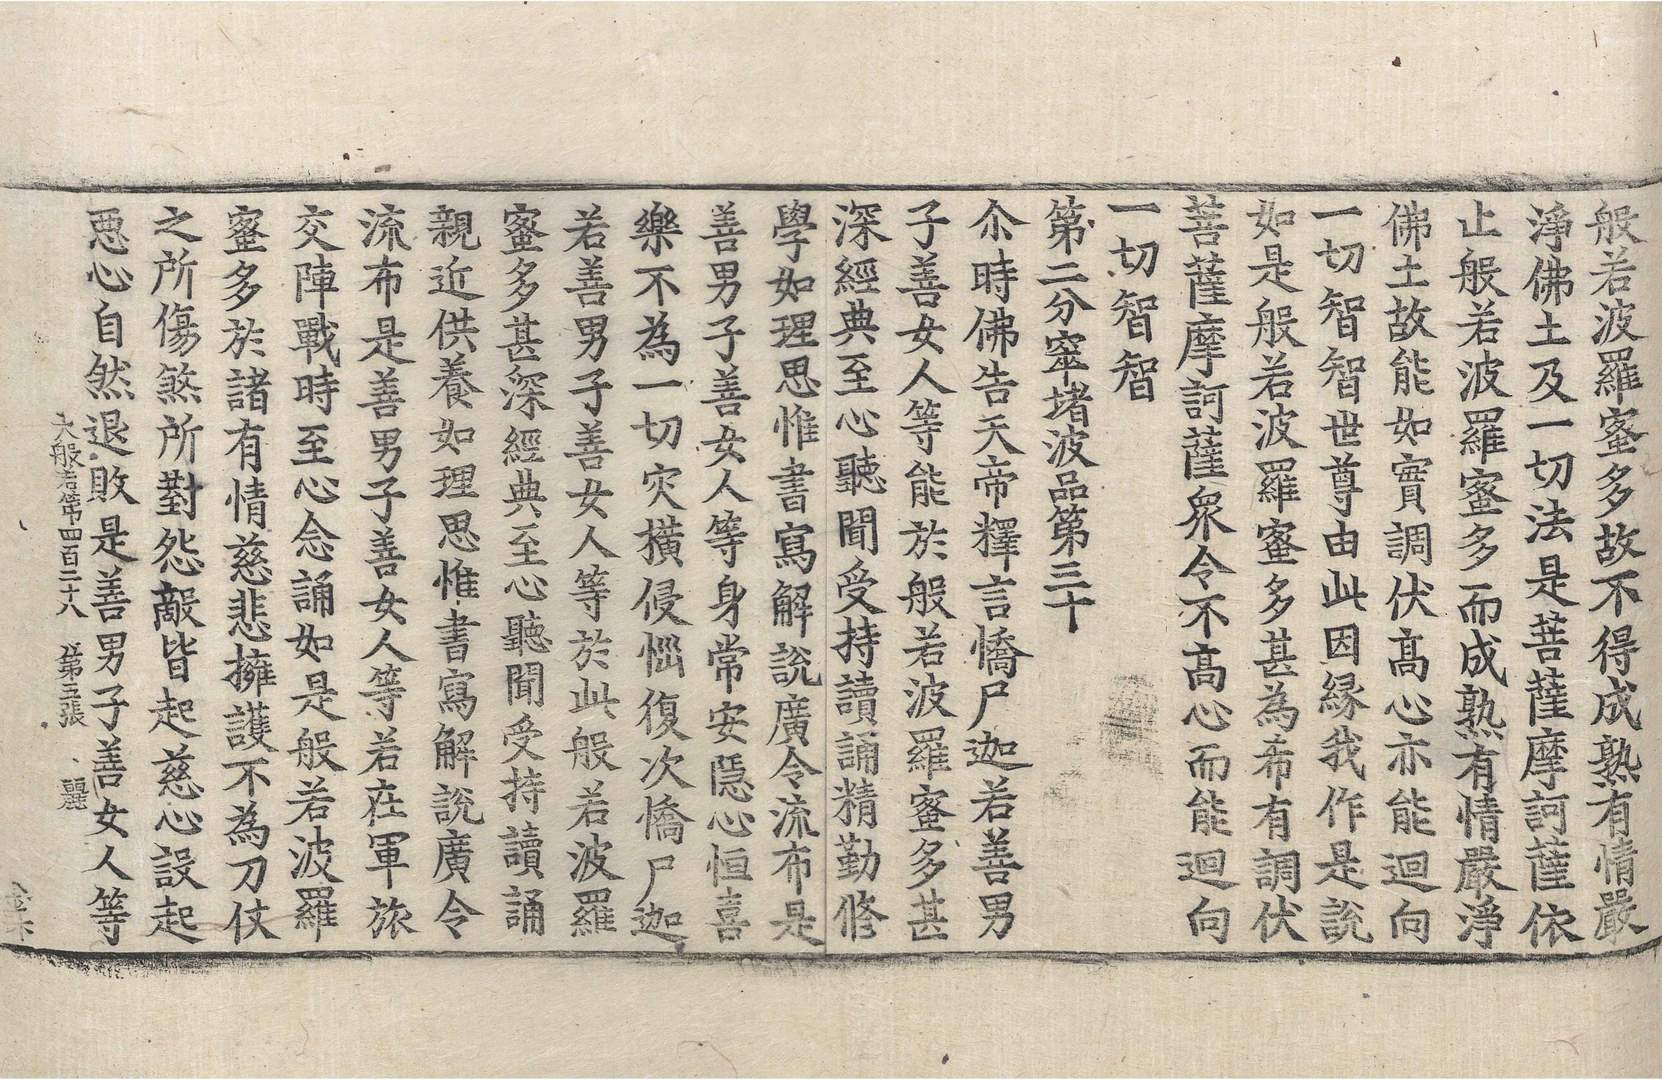 般若波羅蜜多故不得成熟有情嚴
淨佛土及一切法是菩薩摩訶薩依
止般若波羅蜜多而成熟有情嚴淨
佛土故能如實調伏髙心亦能迴向
一切智智世尊由此因縁我作是說
如是般若波羅蜜多甚為希有調伏
菩薩摩訶薩衆令不髙心而能迴向
一切智智
第二分窣堵波品第三十
尒時佛告天帝釋言憍尸迦若善男
子善女人等能於般若波羅蜜多甚
深經典至心聽聞受持讀誦精勤修
學如理思惟書寫解說廣令流布是
善男子善女人等身常安隱心恒喜
樂不為一切灾橫侵惱復次憍尸迦
若善男子善女人等於此般若波羅
蜜多甚深經典至心聽聞受持讀誦
親近供養如理思惟書寫解說廣令
流布是善男子善女人等若在軍旅
交陣戰時至心念誦如是般若波羅
蜜多於諸有情慈悲擁護不為刀仗
之所傷煞所對怨敵皆起慈心設起
惡心自然退敗是善男子善女人等
大般若第四百二十八 第五張 麗